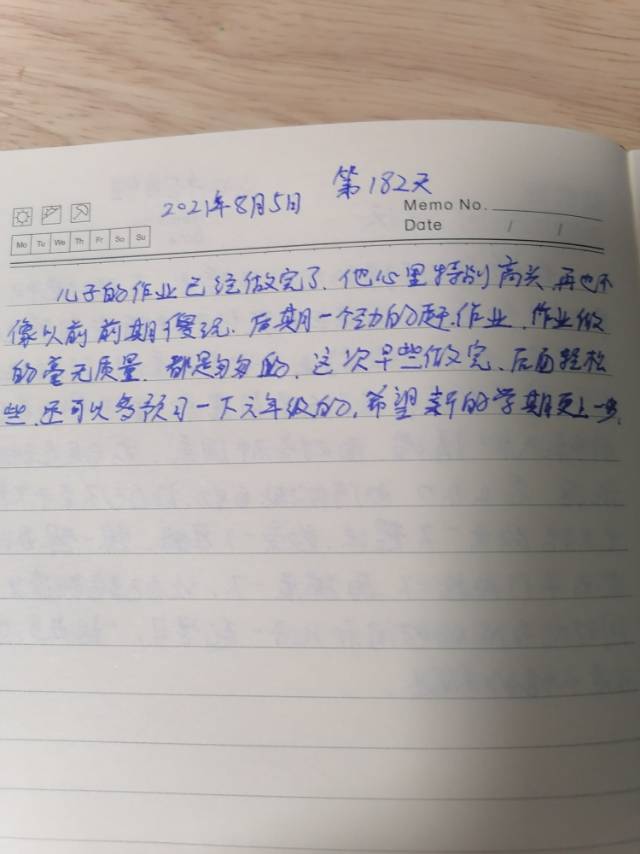 第182天
2021年8月5日
Memo No.
Date / /
Mo Tu We Th Fr Sa Su
儿子的作业已经做完了.他心里特别高兴,再也不
像以前前期慢玩.后期一个劲的赶作业.作业做
的毫无质量.都是匆匆的.这次早些做完.后面轻松
些.还可以多预习一下六年级的.希望新的学期更上一步.